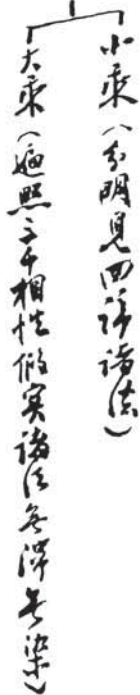 小乘(分明見四諦諸法)
大乘(遍照三千相性假實諸法無滯無染)